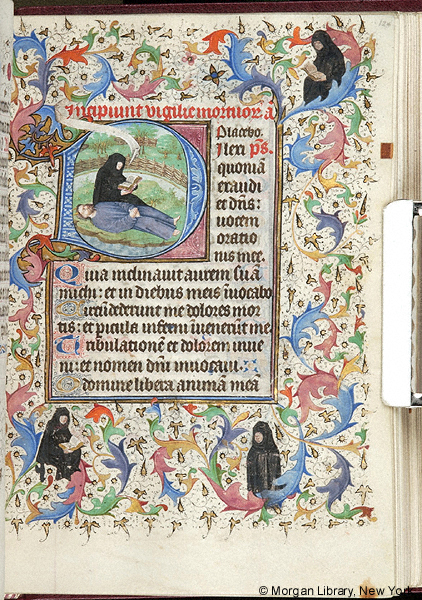 Incipiunt vigilie mortuor ā
Placebo.
Dilexi p̄s.
quoniā
exaudi
et dn̄s:
uocem
oratio
nis mee.
Quia inclinauit aurem suā
michi: et in diebus meis inuocabo
Circūdederunt me dolores mor
tis: et picula inferni īuenerūt me
Tribulationē et dolorem inue
ni: et nomen dn̄i inuocaui.
O domine libera animā meā
© Morgan Library, New York